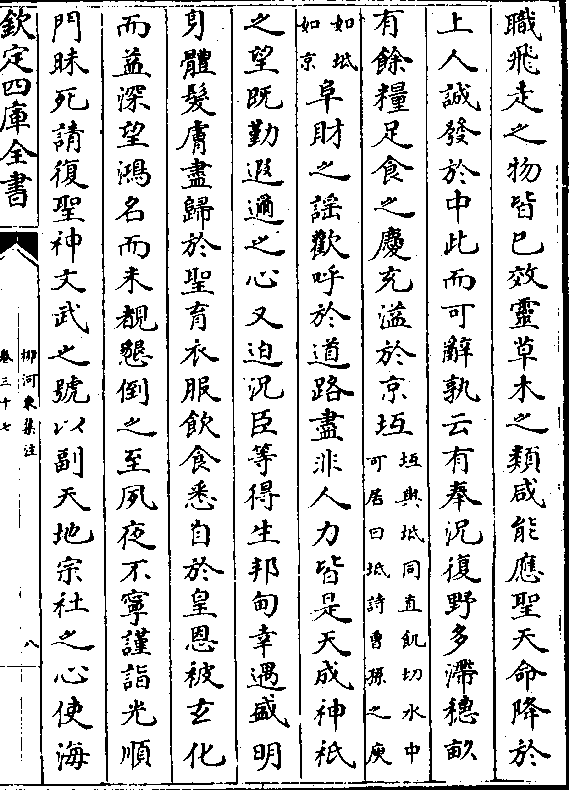 職飛走之物皆已效靈草木之類咸能應聖天命降於
上人誠發於中此而可辭孰云有奉況復野多滯穗畝
有餘糧足食之慶充溢於京坻
坻與坻同直飢切水中
可居曰坻詩曽孫之庾
如坻
如京
阜財之謡歡呼於道路盡非人力皆是天成神祇
之望既勤遐邇之心又迫況臣等得生邦甸幸遇盛明
身體髮膚盡歸於聖育衣服飲食悉自於皇恩被玄化
而益深望鴻名而未覩懇倒之至夙夜不寧謹詣光順
門昧死請復聖神文武之號以副天地宗社之心使海
欽定四庫全書
柳河東集注
卷三十七
八